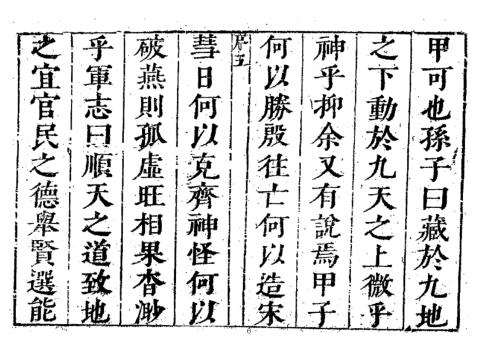 甲可也孫子曰藏於九地
之下動於九天之上微乎
神乎抑余又有說焉甲子
何以勝殷往亡何以造宋
序五
彗日何以克齊神怪何以
破燕則孤虛旺相果杳渺
乎軍志曰順天之道致地
之宜官民之德舉賢選能